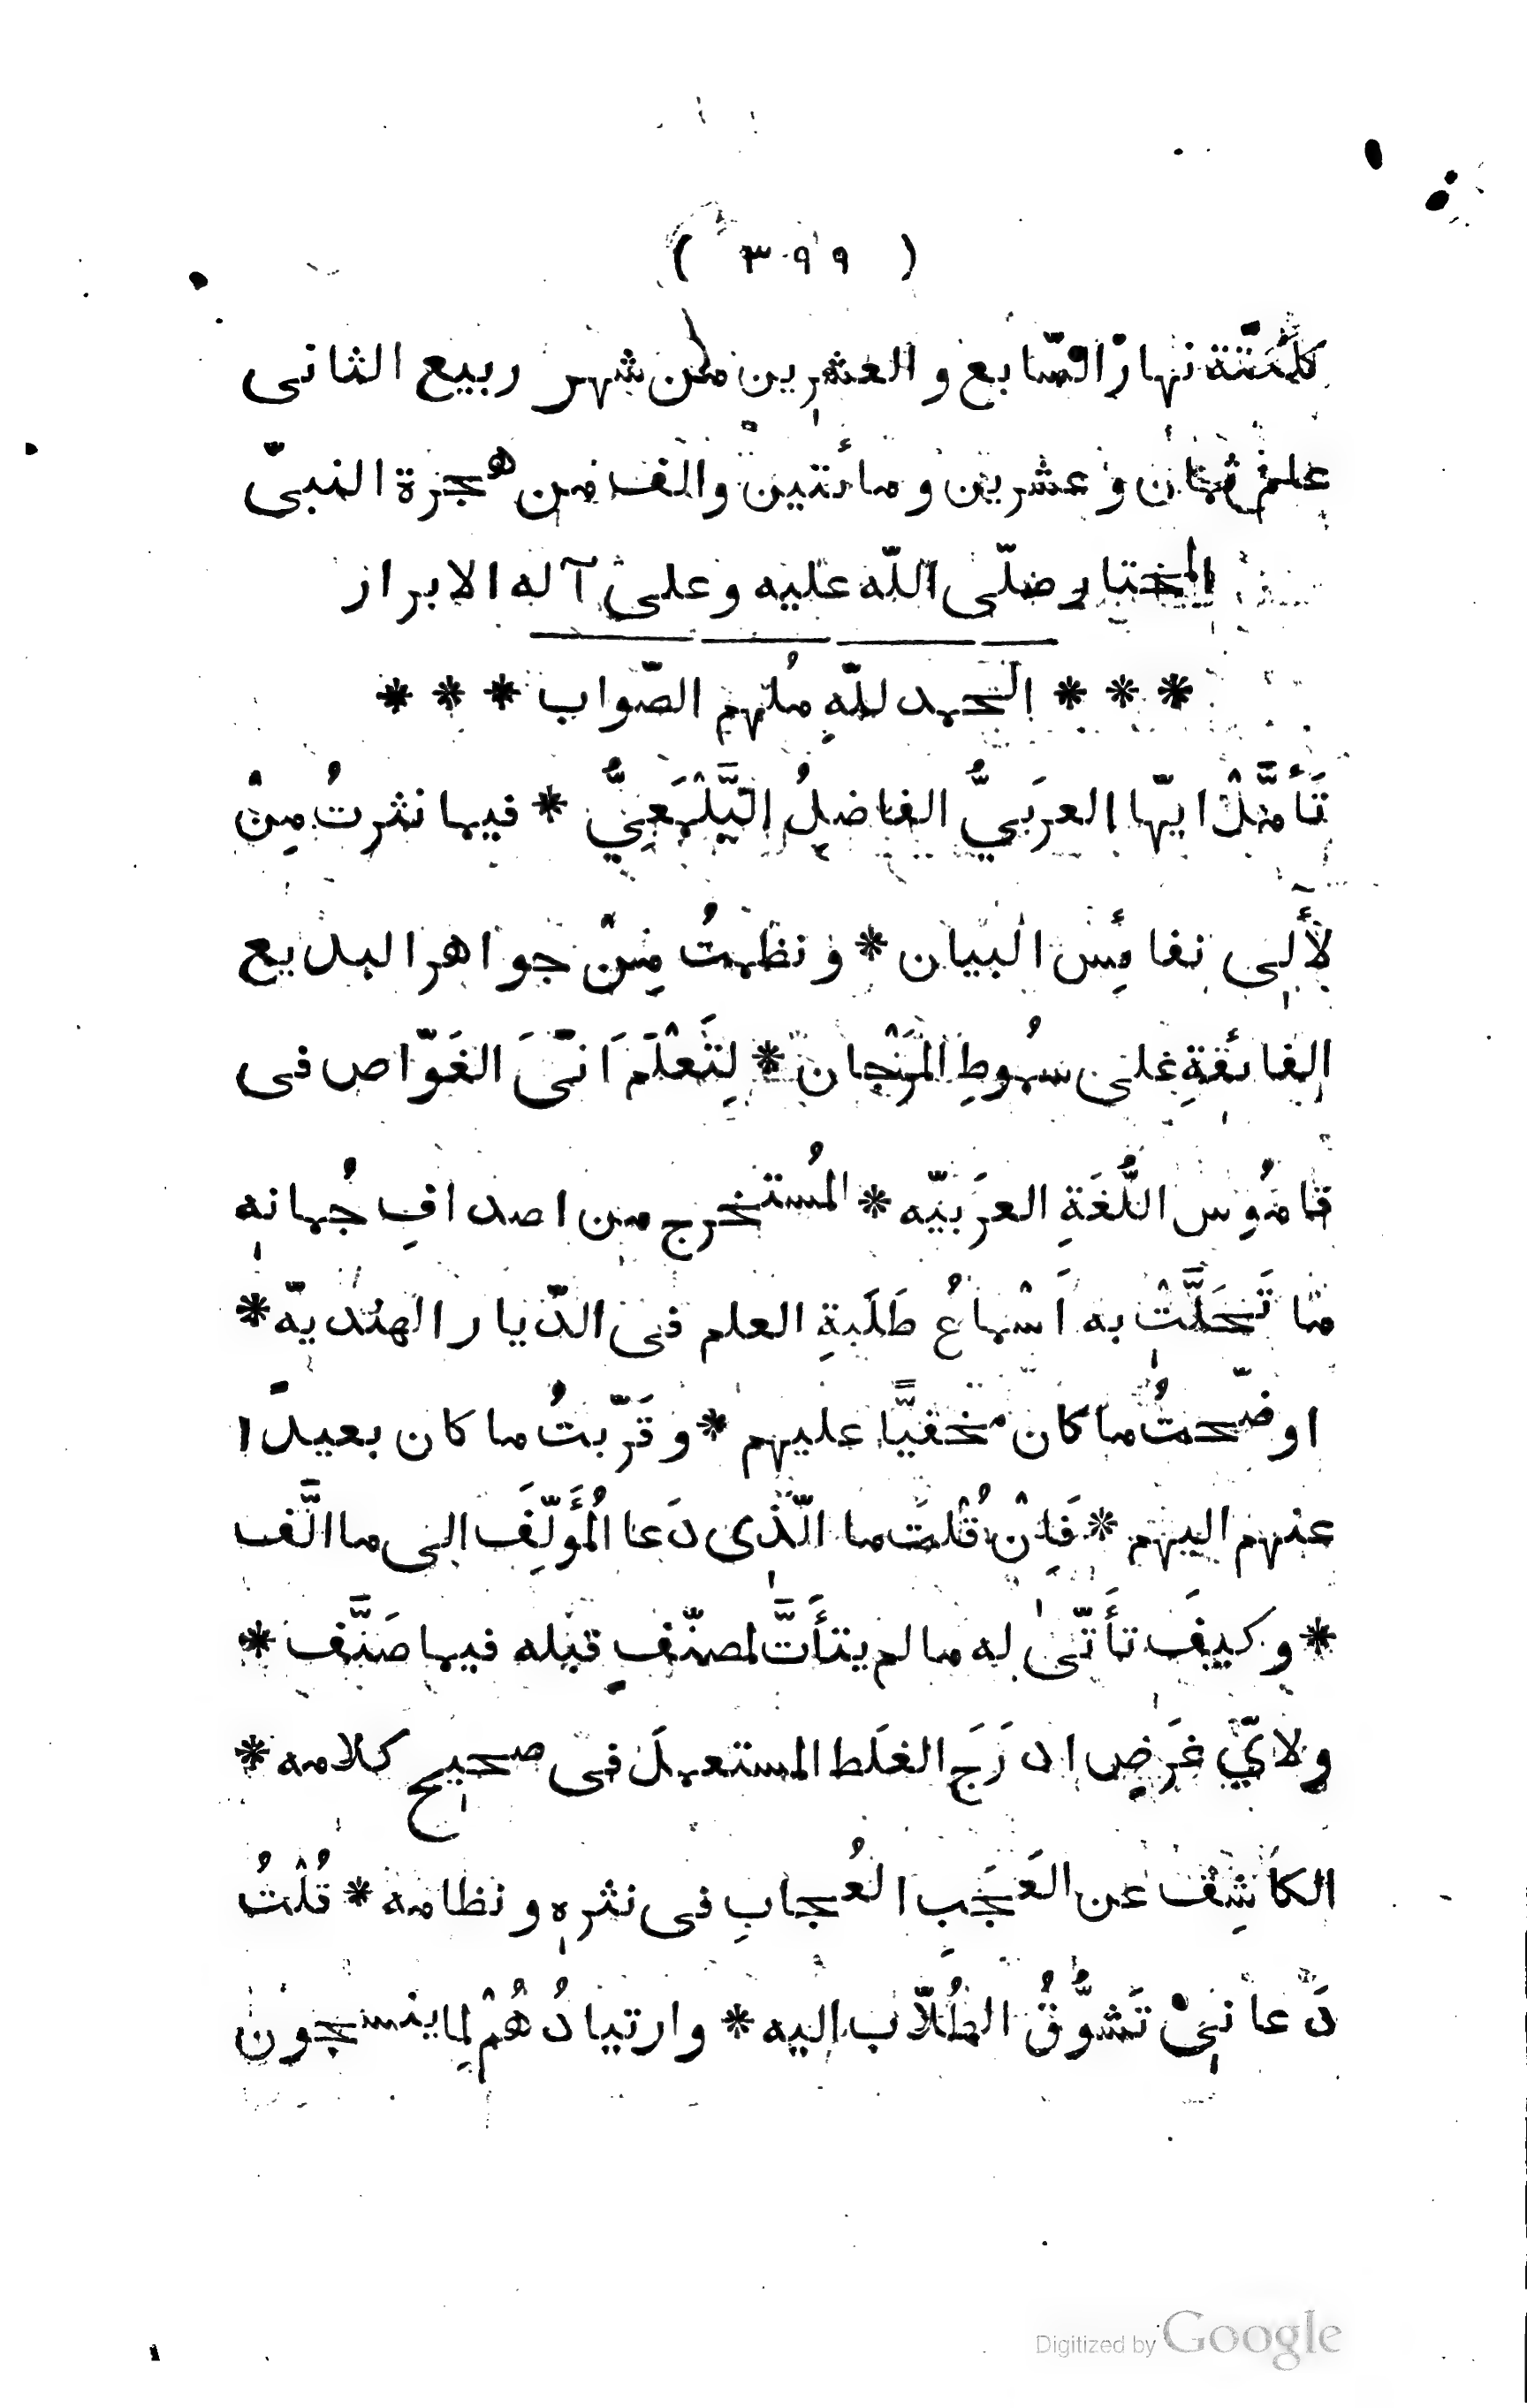 ( ٣٩٩ )
كلكتة نهار السّابع والعشرين من شهر ربيع الثانى
عام ثمان وعشرين ومائتين والف من هجرة النبىّ
المختار صلّى اللّه عليه وعلى آله الابرار
* * * الحمد للّهِ مُلهِم الصّواب * * *
تَأَمَّلْ ايّها العرَبيُّ الفاضلُ اليَّلْمَعِيُّ * فيما نثرتُ مِنْ
لأَلِى نفائِس البيان * ونظمتُ مِنْ جواهر البديع
الفائقةِ على سُموطِ المَرْجان * لِتَعْلَمَ اَنّىَ الغَوّاص فى
قامُوسِ اللُّغَةِ العرَبيّه * المُستخرج من اصدافِ جُمانه
ما تَحَلَّتْ به اَسْماعُ طَلَبةِ العلم فى الدّيار الهنديّه *
اوضحتُ ما كان مخفيًّا عليهم * وقَرّبتُ ما كان بعيدًا
عنهم اليهم * فَاِنْ قُلْتَ ما الّذى دَعا المُؤَلِّفَ الى ما الَّف
* وكيفَ تأَتّىٰ له ما لم يتأَتَّ لمصنّفٍ قبله فيما صَنَّف *
ولايِّ غَرَضٍ ادرَجَ الغلَط المستعمِلَ فى صحيح كلامه *
الكاشِف عن العَجَب العُجابِ فى نثرهٖ ونظامه * قُلْتُ
دَعانِىْ تَشَوُّقُ الطُلّاب اليه * وارتيادُهُمْ لِما ينسجون
Digitized by Google